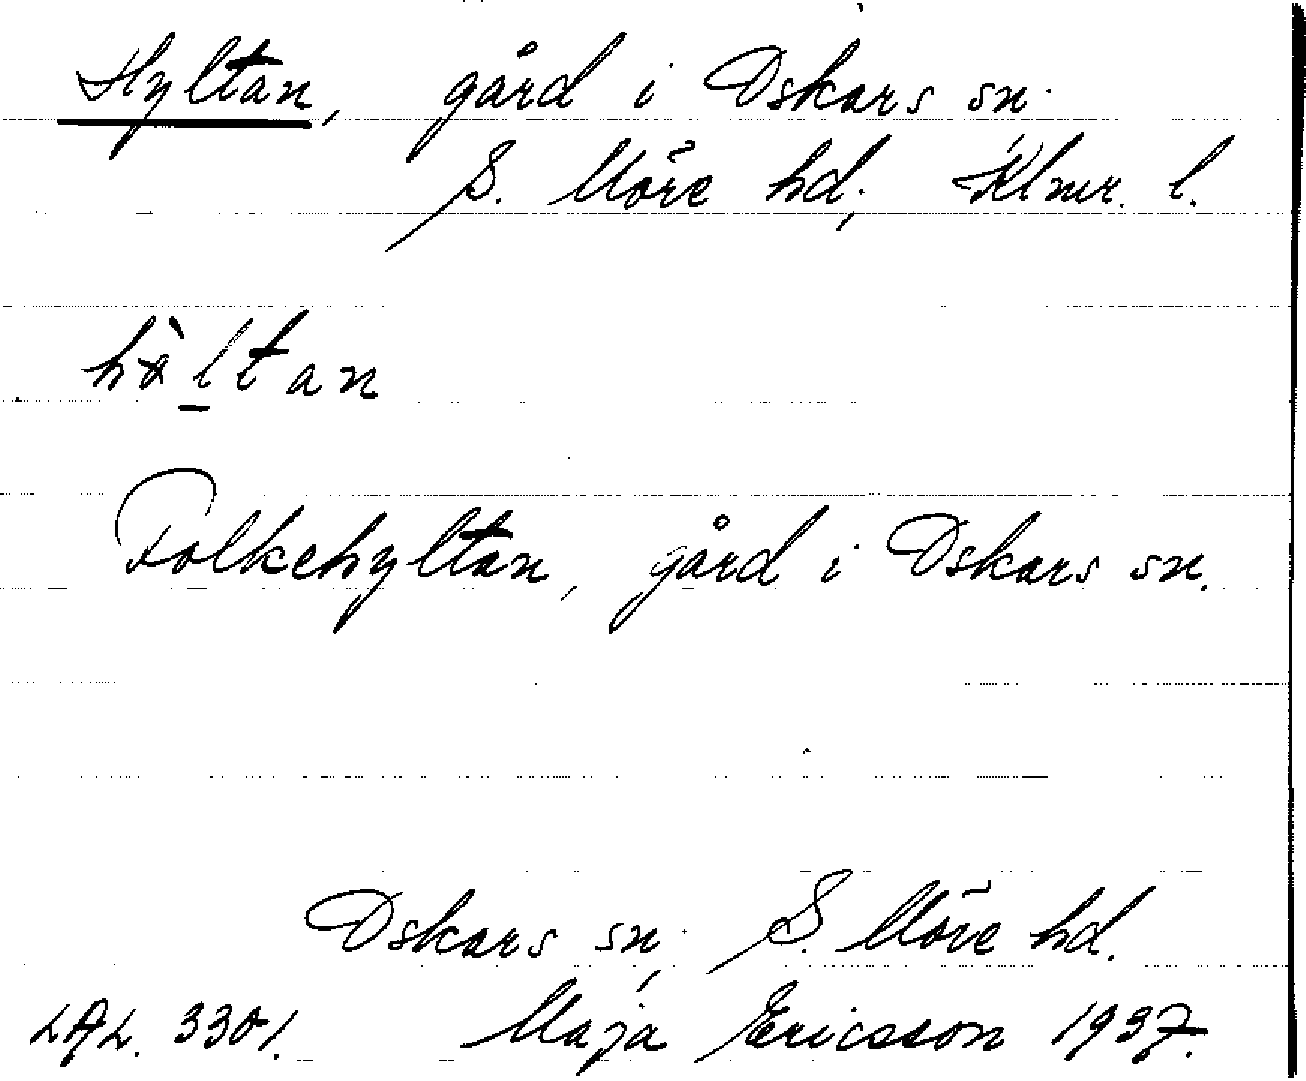 Hyltan, gård i Oskars sn.
S. Möre hd; Klmr. l.
Folkehyltan, gård i Oskars sn.
Oskars sn; S. Möre hd.
LAL. 3301. Maja Ericsson 1937.